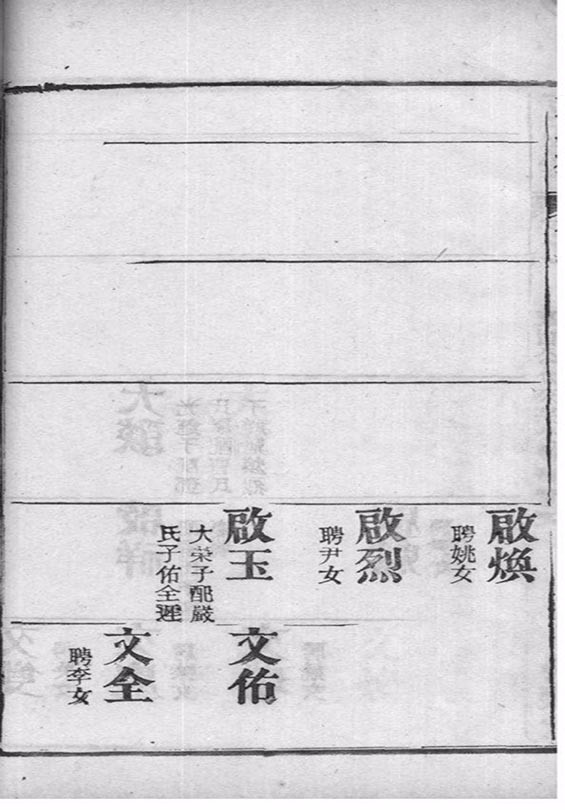 啟煥
聘姚女
啟烈
聘尹女
啟玉
大荣子配嚴
氏子佑全遲
文佑
文全
聘李女